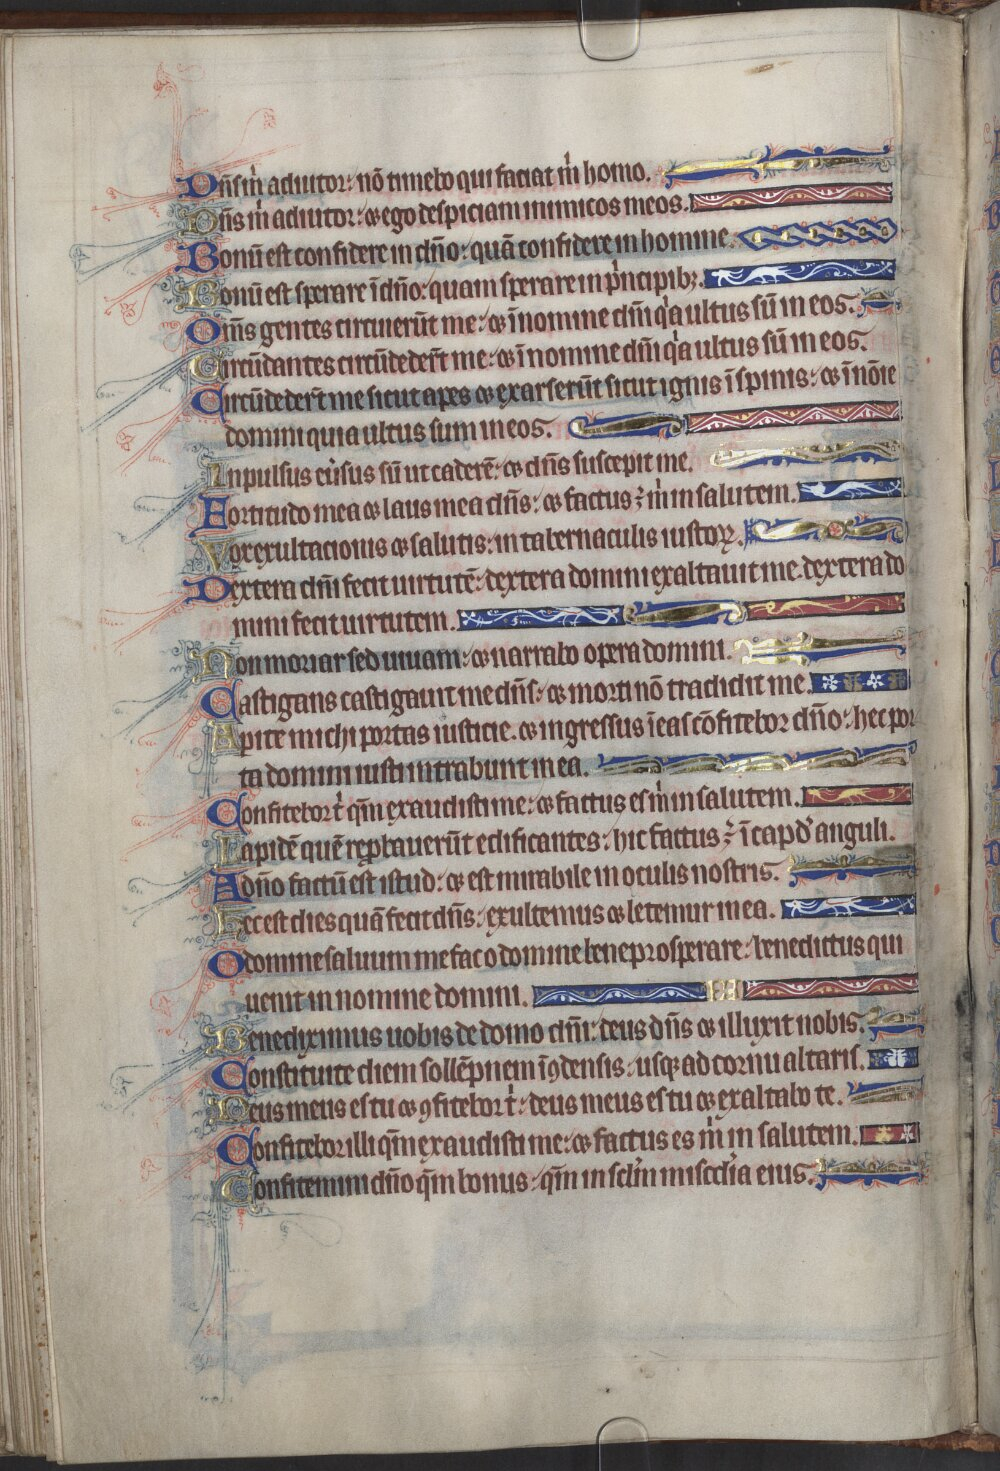 Dn̄s m̄ adiutor: nō timebo qui faciat m̄ homo.
Dn̄s m̄ adiutor: ⁊ ego despiciam inimicos meos.
Bonū est confidere in dn̄o: quā confidere in homine.
Bonū est sperare ī dn̄o: quam sperare in pⁱncipibꝫ.
Om̄s gentes circuierūt me: ⁊ ī nomine dn̄i qͥa ultus sū in eos.
Circūdantes circūdeder̄t me: ⁊ ī nomine dn̄i qͥa ultus sū in eos.
Circūdeder̄t me sicut apes ⁊ exarserūt sicut ignis ī spinis: ⁊ ī nōīe
domini quia ultus sum in eos.
Inpulsus eūsus sū ut caderē: ⁊ dn̄s suscepit me.
Fortitudo mea ⁊ laus mea dn̄s: ⁊ factus ē m̄ in salutem.
Vox exultacionis ⁊ salutis: in tabernaculis iustoꝝ.
Dextera dn̄i fecit uirtutē: dextera domini exaltauit me. dextera do
mini fecit uirtutem.
Non moriar sed uiuam: ⁊ narrabo opera domini.
Castigans castigauit me dn̄s: ⁊ morti nō tradidit me.
Apite michi portas iusticie. ⁊ ingressus ī eas cōfitebor dn̄o: hec por
ta domini iusti intrabunt in ea.
Confitebor t̄ qm̄ exaudisti me: ⁊ factus es m̄ in salutem.
Lapidē quē reꝓbauerūt edificantes: hic factus ē ī capd̄ anguli.
A dn̄o factū est istud: ⁊ est mirabile in oculis nostris.
Hec est dies quā fecit dn̄s: exultemus ⁊ letemur in ea.
O domine saluum me fac o domine bene prosperare: benedictus qui
uenit in nomine domini.
Benediximus uobis de domo dn̄i: deus dn̄s ⁊ illuxit nobis.
Constituite diem sollēpnem ī ꝯdensis: usqꝫ ad cornu altaris.
Deus meus es tu ⁊ ꝯfitebor t̄: deus meus es tu ⁊ exaltabo te.
Confitebor illi qm̄ exaudisti me: ⁊ factus es m̄ in salutem.
Confitemini dn̄o qm̄ bonus: qm̄ in sclm̄ misc̄dia eius.